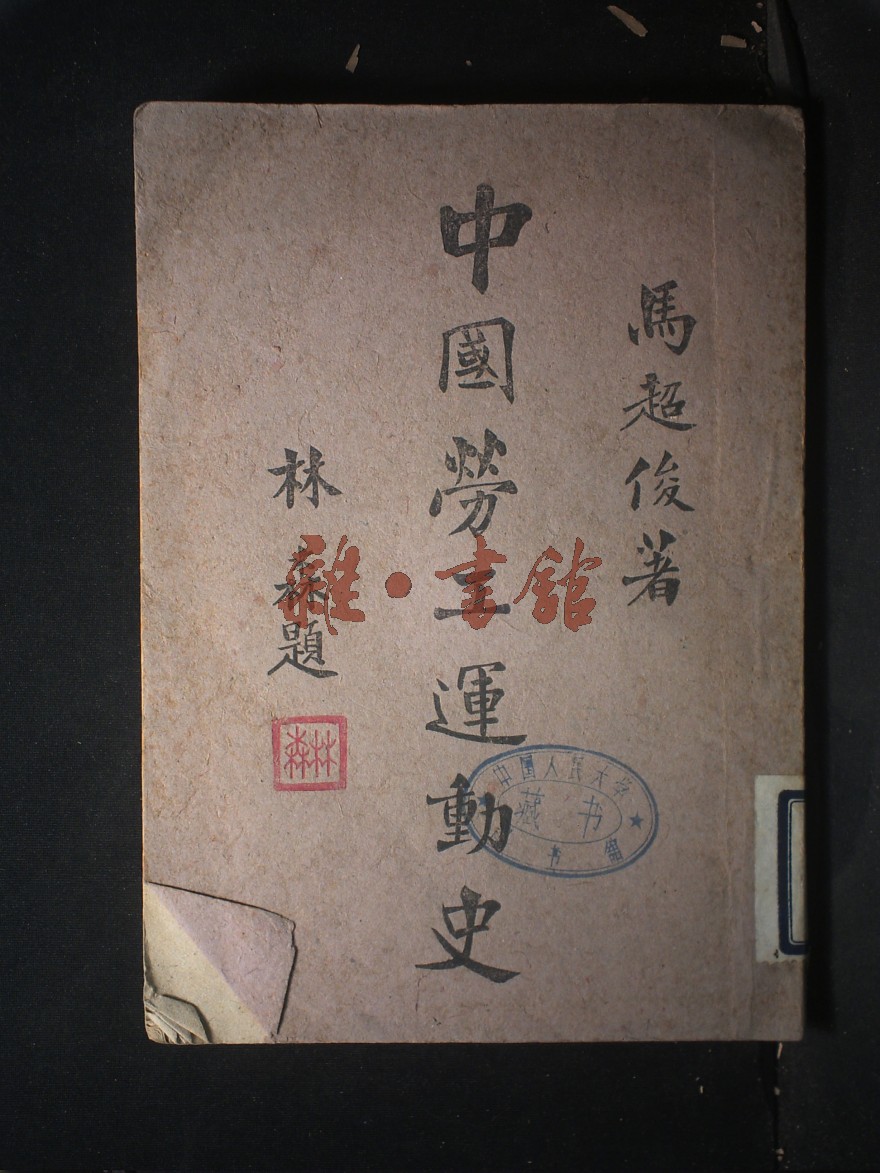 馬超俊著
中國勞工運動史
林森題
林森
雜·書館
中国人民大学
藏书
书馆